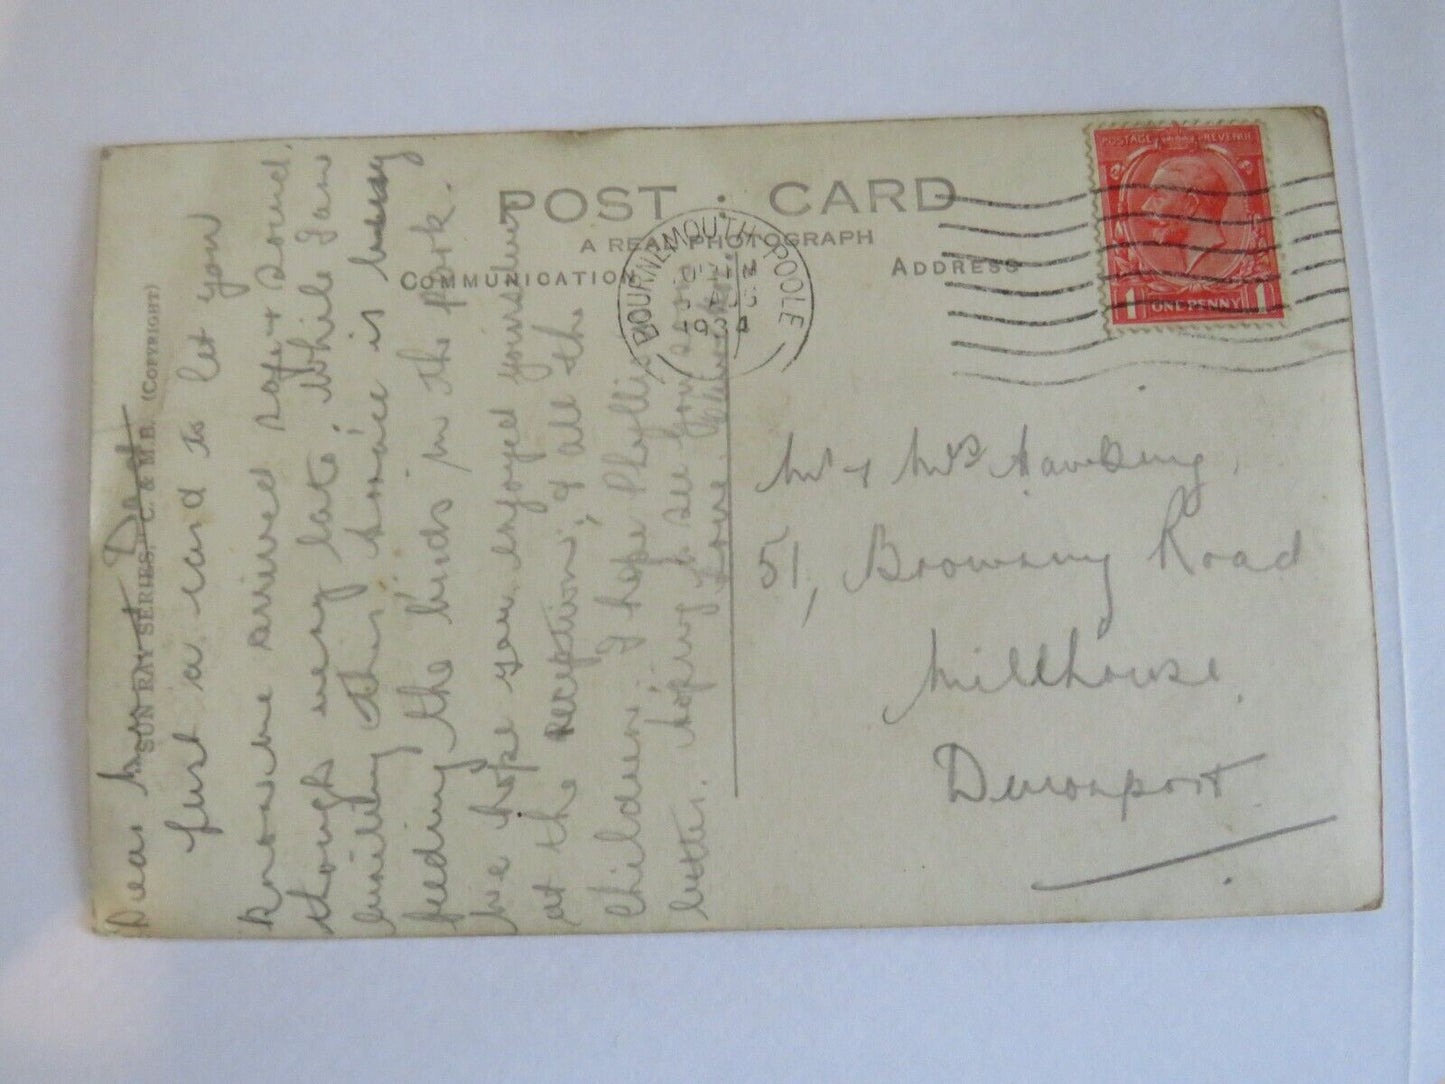 POST CARD
A REAL PHOTOGRAPH
COMMUNICATION
ADDRESS
"SUN RAY SERIES," C. & M.B. (COPYRIGHT)
POSTAGE REVENUE
1 ONE PENNY 1
BOURNEMOUTH POOLE
Dear
Just a card to let you
know we arrived safe & sound,
though very late. While I am
writing this, is busy
feeding the birds in the Park.
We hope you enjoyed yourselves
at the Reception, & all the
Children, I hope Phyllis
better. hoping to see you soon
Love
Mr & Mrs
51, Browning Road
Millhouse,
Devonport